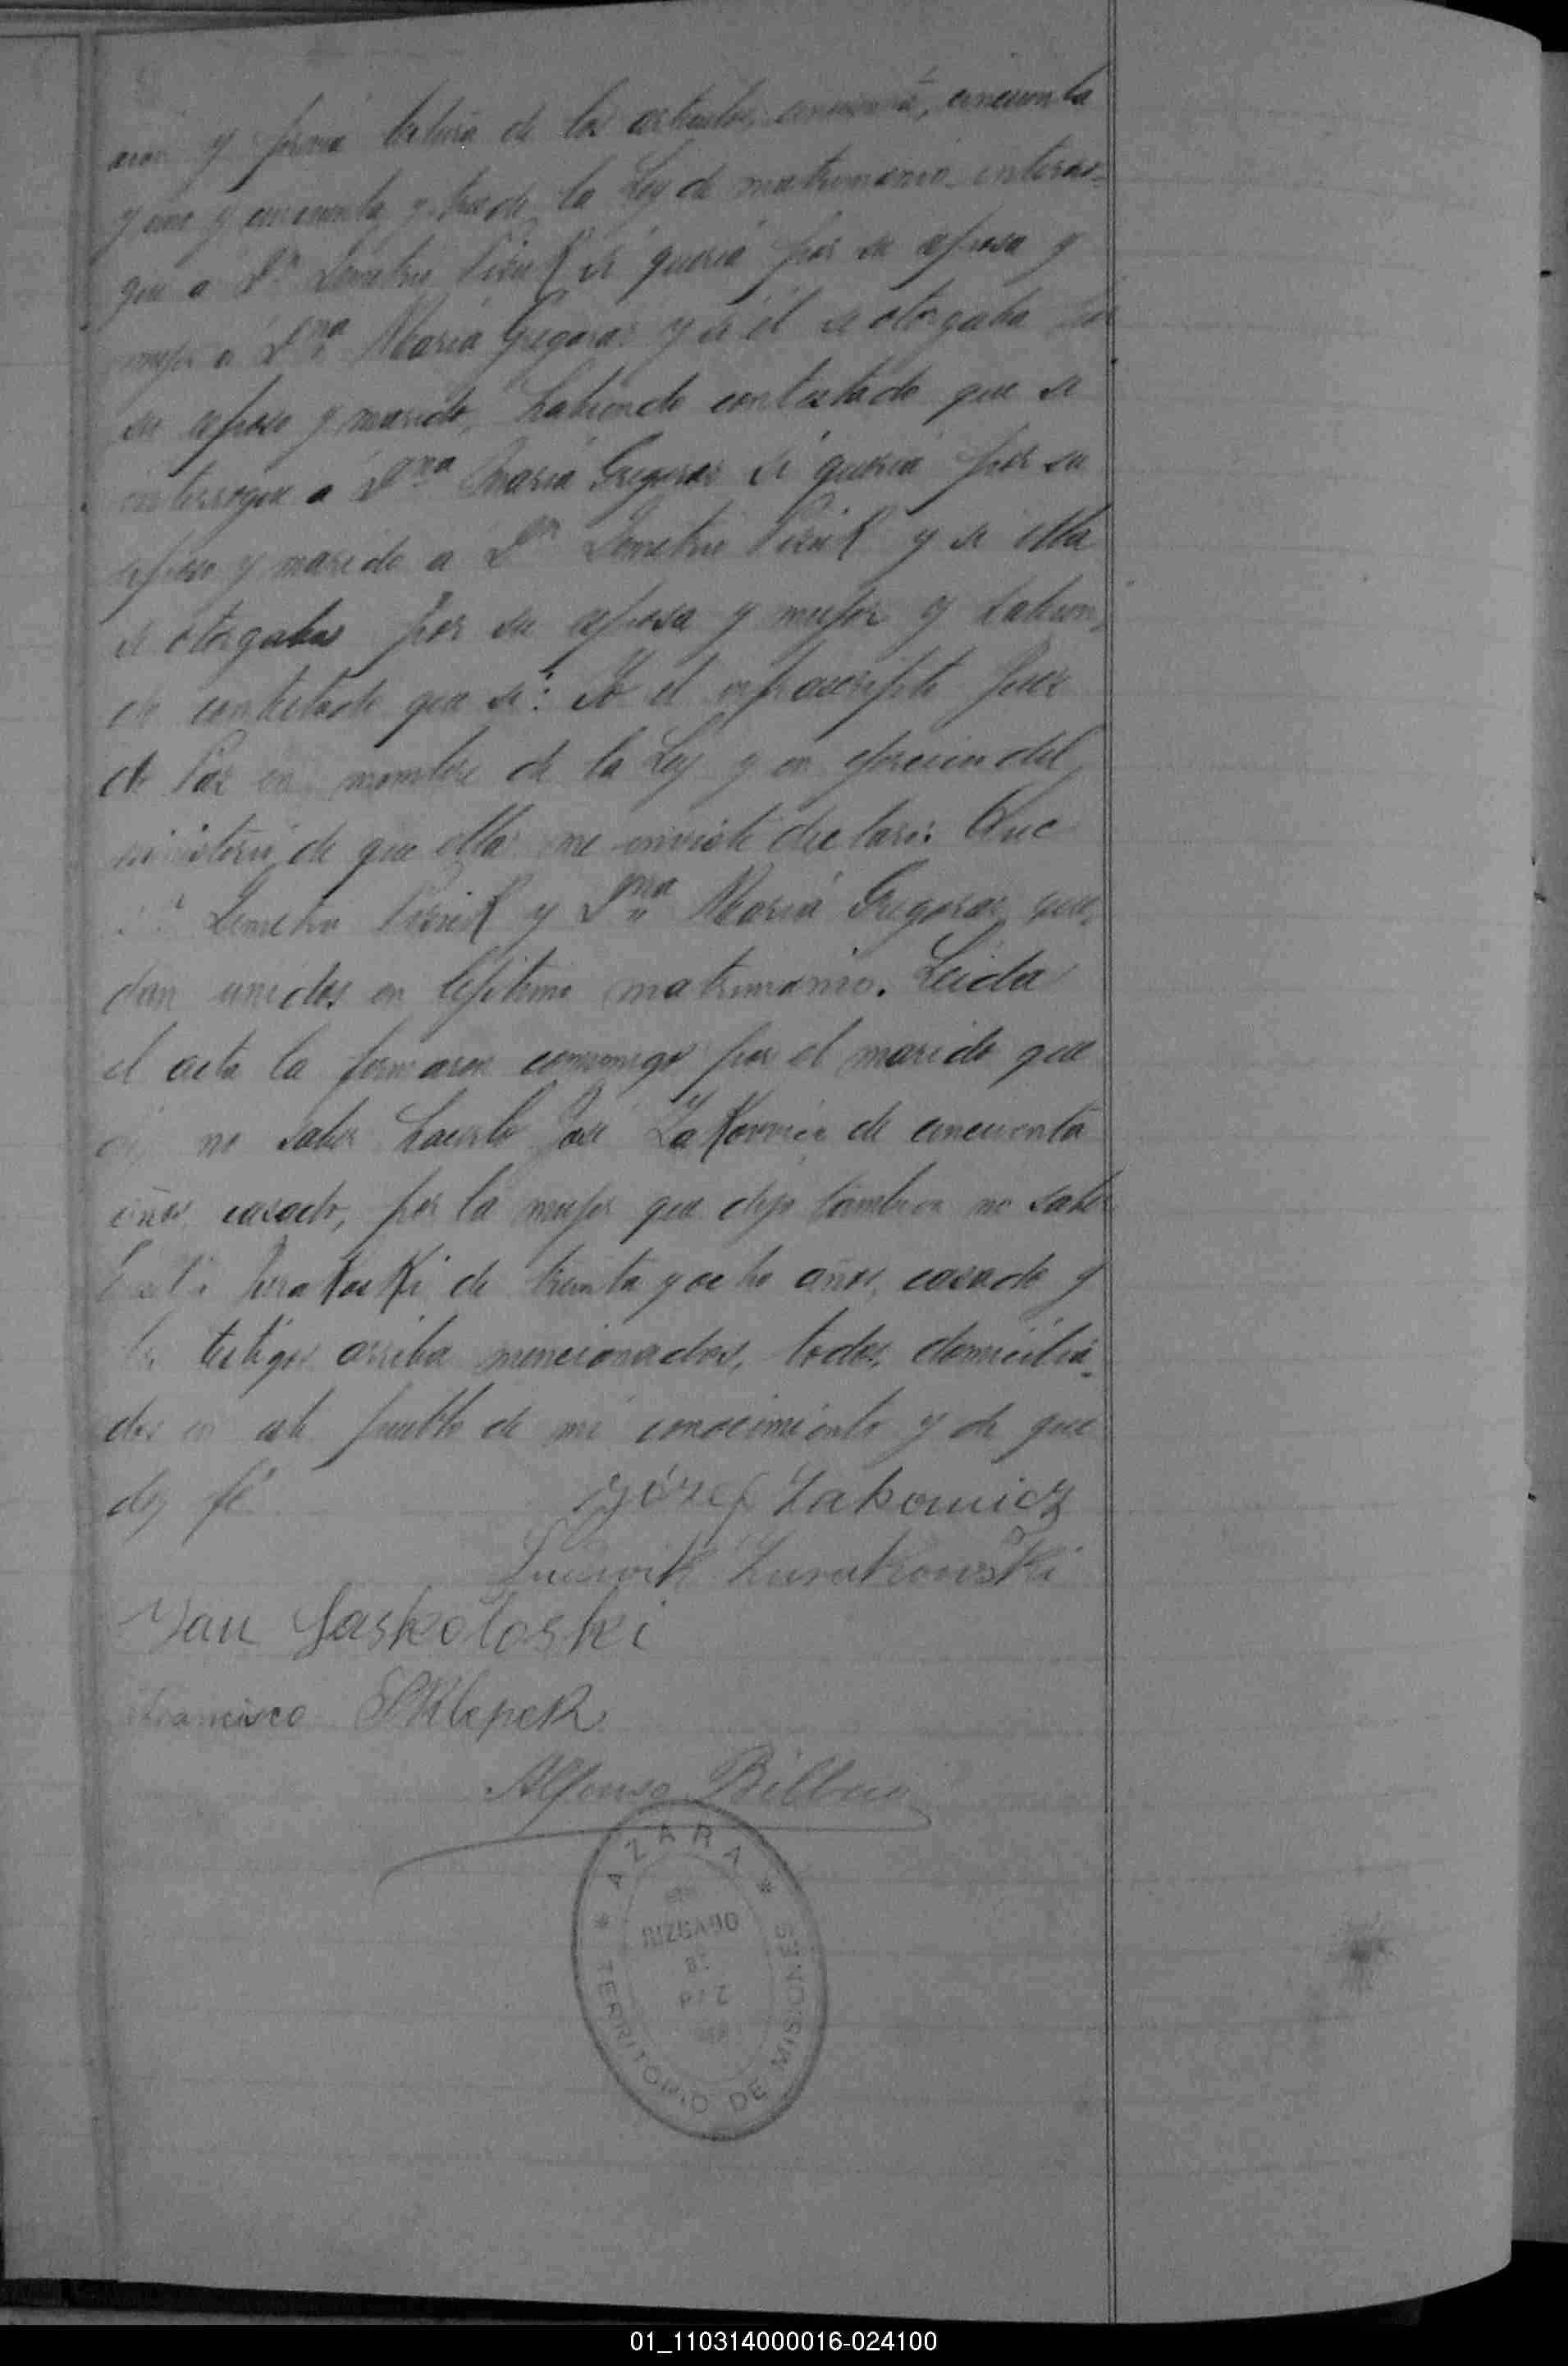 y previa lectura de los articulos cincuenta, cincuenta
y uno y cincuenta y tres de la Ley de matrimonio interro-
gué a Dn Demetrio Pisuk si queria por su esposa y
mujer a Dña María Gregoras y si él se otorgaba por
su esposo y marido, habiendo contestado que si
interrogué a Dña María Gregoras si queria por su
esposo y marido a Dn Demetrio Pisuk y si ella
se otorgaba por su esposa y mujer y habien-
do contestado que si: Yo el infrascripto Juez
de Paz en nombre de la Ley y en ejercicio del
ministerio de que ella me inviste declaro: Que
Dn Demetrio Pisuk y Dña María Gregoras que-
dan unidos en lejitimo matrimonio. Leida
el acta la firmaron conmigo por el marido que
dijo no saber hacerlo José Zakovvicz de cincuenta
años, casado, por la mujer que dijo tambien no saber
de treinta y ocho años, casado y
los testigos arriba mencionados, todos domicilia-
dos en este pueblo de mi conocimiento y de que
doy fé
Józef Zakowicz
Ludwik Zurakowski
Jan Jaskotoski
Francisco Sklepek
Alfonso Bilbao
* AZARA *
JUZGADO
DE
PAZ
TERRITORIO DE MISIONES
01_110314000016-024100